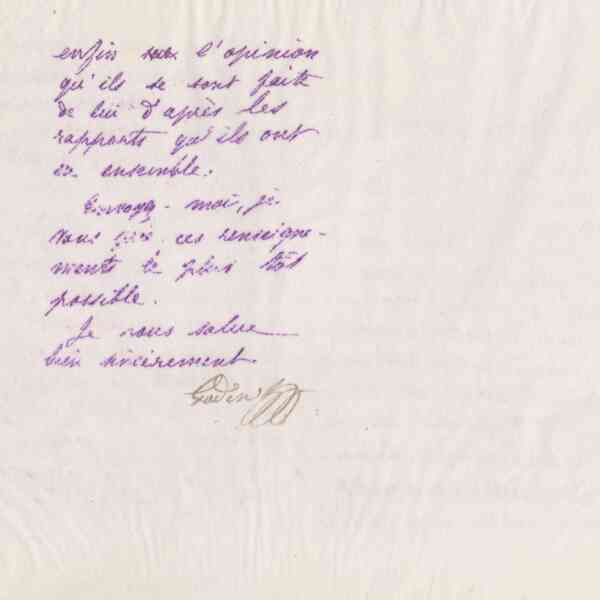 enfin sur l'opinion
qu'ils se sont faite
de lui d'après les
rapports qu'ils ont
eu ensemble.
Envoyez-moi, je
vous prie ces renseigne-
ments le plus tôt
possible.
Je vous salue
bien sincèrement.
Godin